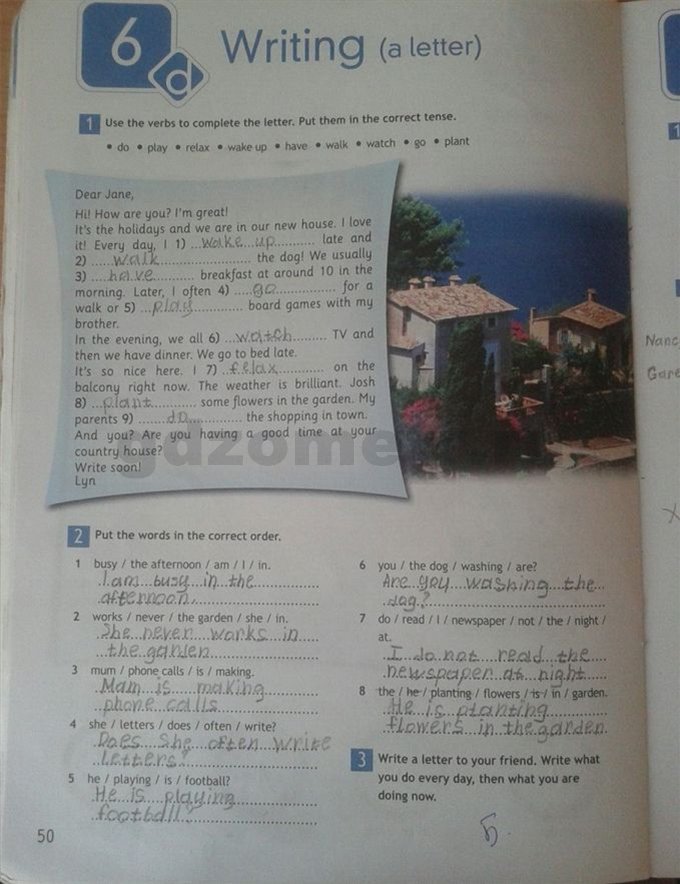 6 d
Writing (a letter)
1 Use the verbs to complete the letter. Put them in the correct tense.
• do • play • relax • wake up • have • walk • watch • go • plant
Dear Jane,
Hi! How are you? I'm great!
It's the holidays and we are in our new house. I love
it! Every day, I 1) ...wake up............ late and
2) .....walk.......................... the dog! We usually
3) ....have............. breakfast at around 10 in the
morning. Later, I often 4) ....go.................. for a
walk or 5) ...play............... board games with my
brother.
In the evening, we all 6) ...watch......... TV and
then we have dinner. We go to bed late.
It's so nice here. I 7) ..relax............ on the
balcony right now. The weather is brilliant. Josh
8) ...plant............ some flowers in the garden. My
parents 9) .......do............. the shopping in town.
And you? Are you having a good time at your
country house?
Write soon!
Lyn
gdzome
2 Put the words in the correct order.
1 busy / the afternoon / am / I / in.
I am busy in the
afternoon.
2 works / never / the garden / she / in.
She never works in
the garden
3 mum / phone calls / is / making.
Mam is making
phone calls
4 she / letters / does / often / write?
Does she often write
letters?
5 he / playing / is / football?
He is playing
football?
50
6 you / the dog / washing / are?
Are you washing the
dog?
7 do / read / I / newspaper / not / the / night /
at.
I do not read the
newspaper at night
8 the / he / planting / flowers / is / in / garden.
He is planting
flowers in the garden.
3 Write a letter to your friend. Write what
you do every day, then what you are
doing now.
1
Nanc
Gare